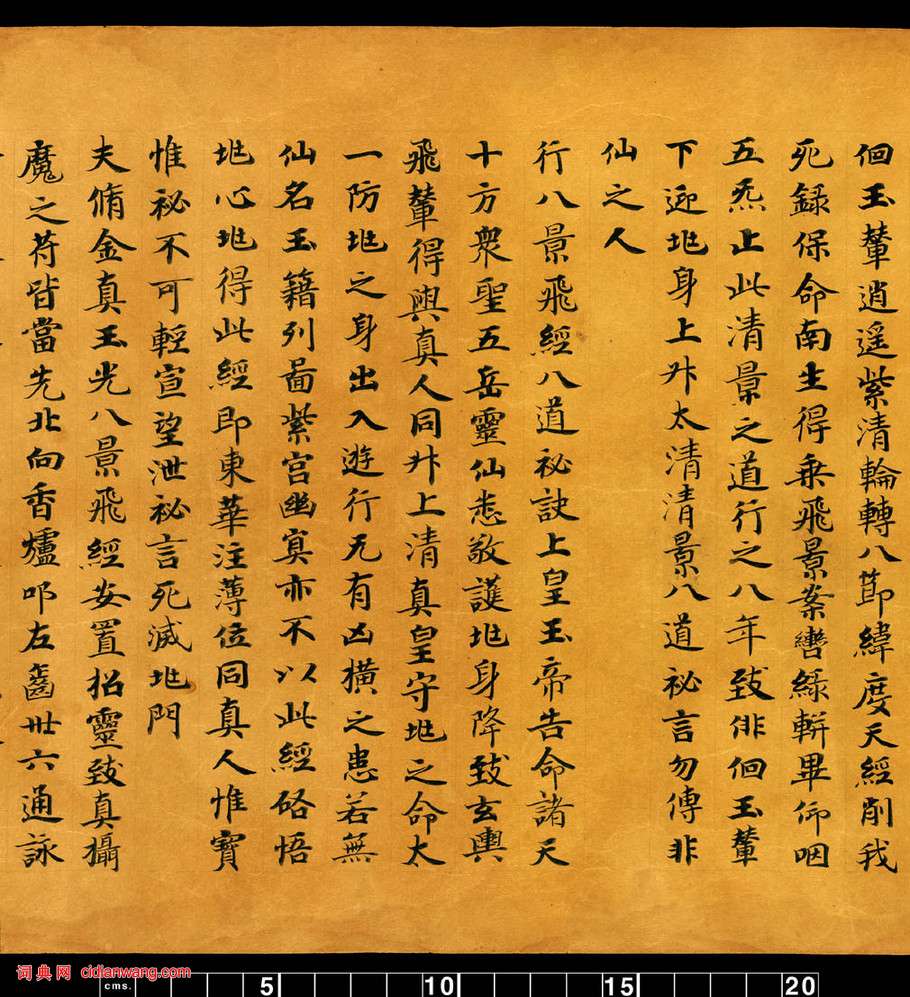 佪玉輦逍遥紫清輪轉八節緯度天經削我
死録保命南生得乗飛景案轡緑軿畢仰咽
五炁止此清景之道行之八年致俳佪玉輦
下迎地身上升太清清景八道祕言勿傳非
仙之人
行八景飛經八道祕訣上皇玉帝告命諸天
十方衆聖五岳靈仙悉敬護地身降致玄輿
飛輦得與真人同升上清真皇守地之命太
一防地之身出入遊行无有凶横之患若無
仙名玉籍列啚紫宫幽冥亦不以此經啓悟
地心地得此經即東華注薄位同真人惟寳
惟祕不可輕宣望泄祕言死滅地門
夫脩金真玉光八景飛經安置招靈致真攝
魔之苻皆當先北向香爐叩左齒卅六通詠
词典网 cidianwang.com
cms. 5 10 15 20